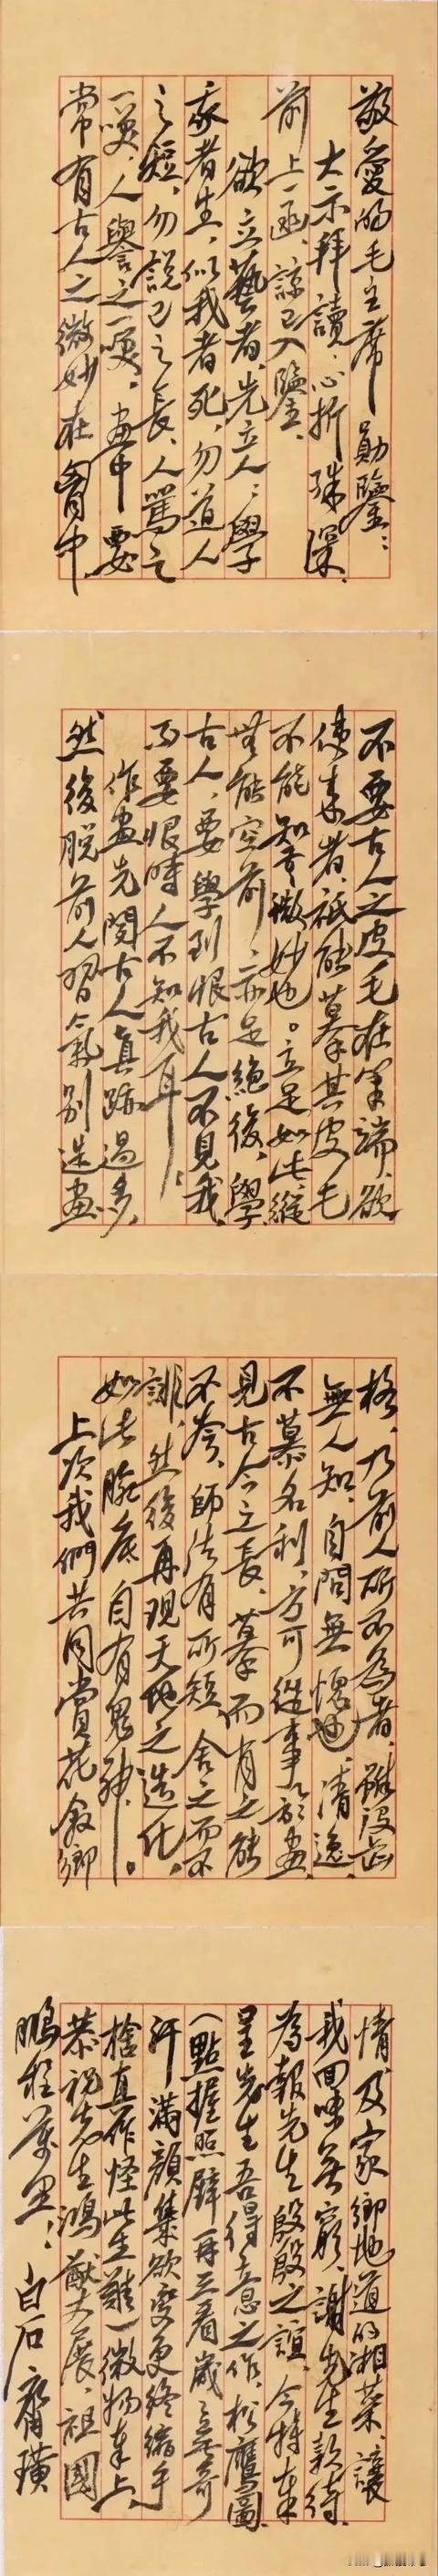 敬愛的毛主席勛鑒：
大示拜讀、心折殊深、
前上一函、諒已入鑒、
欲立藝者、先立人、學
我者生、似我者死、勿道人
之短、勿說己之長、人罵之
一笑、人譽之一笑、畫中要
常有古人之微妙在胸中
不要古人之皮毛在筆端、欲
使來者、祇能摹其皮毛
不能知其微妙也。立足如此、縱
無能空前、亦足絕後、學
古人、要學到恨古人不見我、
不要恨時人不知我耳、
作畫先閱古人真跡過多、
然後脫前人習氣別造畫
格、乃前人所不為者、雖沒齒
無人知、自問無愧也、清逸、
不慕名利、方可從事於畫、
見古今之長、摹而肖之能
不夸、師法有所短、舍之而不
誹、然後再現天地之造化、
如此腕底自有鬼神、
上次我們共同賞花敘鄉
情及家鄉地道的湘菜、讓
我回味無窮、謝先生款待、
為報先生殷殷之誼、今特奉
呈先生吾得意之作、松鷹圖、
一點握照壁再三看歲歲無奇
汗滿顏集欲變更終縮手
捨真作怪此生難一微物奉上、
恭祝先生鴻猷大展、祖國
鵬程萬里：白石齊璜